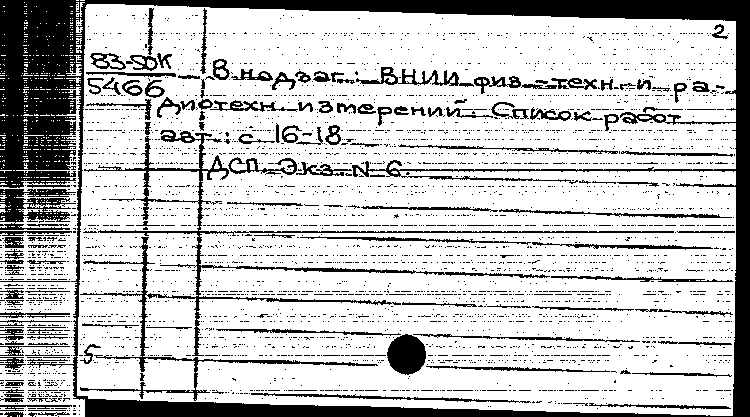 2
83-50К
5466
В надзаг.: ВНИИ физ.-техн. и ра-
диотехн. измерений. Список работ
авт.: с 16-18.
ДСП. Экз. N 6.
5